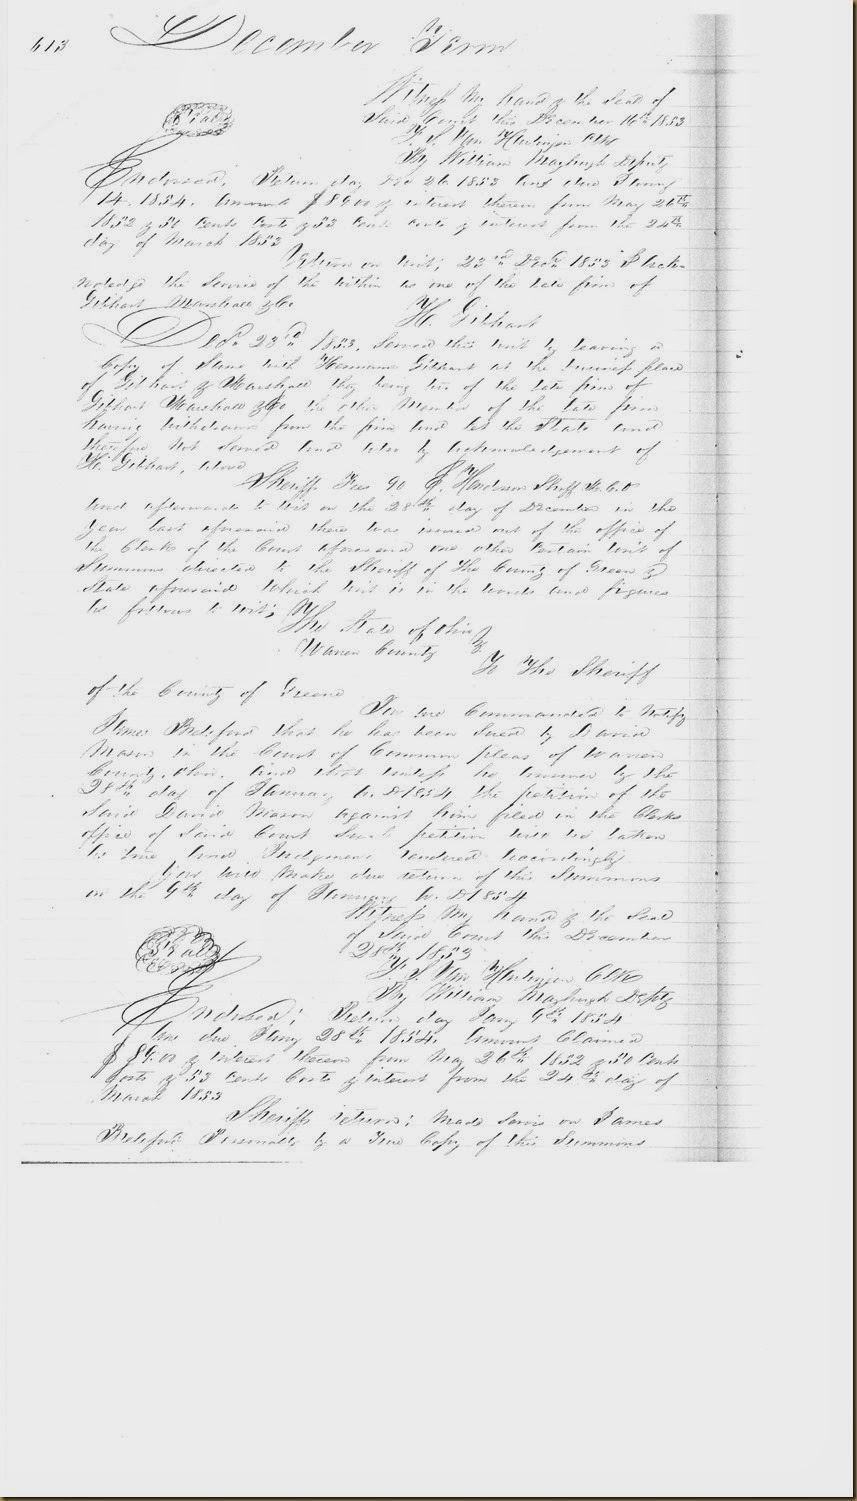 613 December Term
Witness My hand & the Seal of
Said Court this December 16th 1853
J. S. Van Harlingen Clk
By William Mayhugh Deputy
Seal
Endorsed, Return day Dec 26 1853 Ans due Janry
14. 1854. Amount $89.00 & interest thereon from May 26th
1852 & 50 Cents Costs & 53 Cents costs & interest from the 24th
day of March 1853
Return on writ; 23rd Decr 1853 I Ack-
nowledge the Service of the within as one of the late firm of
Gibhart Marshall & Co.
H. Gibhart
Decr 23rd 1853. Served this writ by leaving a
Copy of Same with Hermann Gibhart at the business place
of Gibhart & Marshall they being two of the late firm of
Gibhart Marshall & Co the other Member of the late firm
having withdrawn from the firm and left the State and
therefore not Served and also by acknowledgement of
H. Gibhart, above
Sheriffs Fees 90 Henderson Shff W.C.O
And afterwards to wit on the 28th day of December in the
year last aforesaid there was issued out of the office of
the Clerk of the Court aforesaid one other Certain writ of
Summons directed to the Sheriff of the County of Green &
State aforesaid which writ is in the words and figures
as follows to wit;
The State of Ohio
Warren County
To The Sheriff
of the County of Greene
You are Commanded to Notify
James that he has been Sued by David
Mason in the Court of Common pleas of Warren
County, Ohio. And that unless he answer by the
28th day of January A. D 1854 the petition of the
Said David Mason against him filed in the Clerks
office of Said Court Such petition will be taken
as true and Judgement rendered accordingly
You will Make due return of this Summons
on the 9th day of January A. D 1854
Witness My hand & the Seal
of Said Court this December
28th 1853
J. S. Van Harlingen Clk
By William Mayhugh Depty
Seal
Endorsed; Return day Jany 9th 1854
Ans due Jany 28th 1854. Amount Claimed
$89.00 & interest thereon from May 26th 1852 & 50 Cents
Costs & 53 Cents Costs & interest from the 24th day of
March 1853
Sheriffs return; Made Servis on James
Personally by a True Copy of this Summons